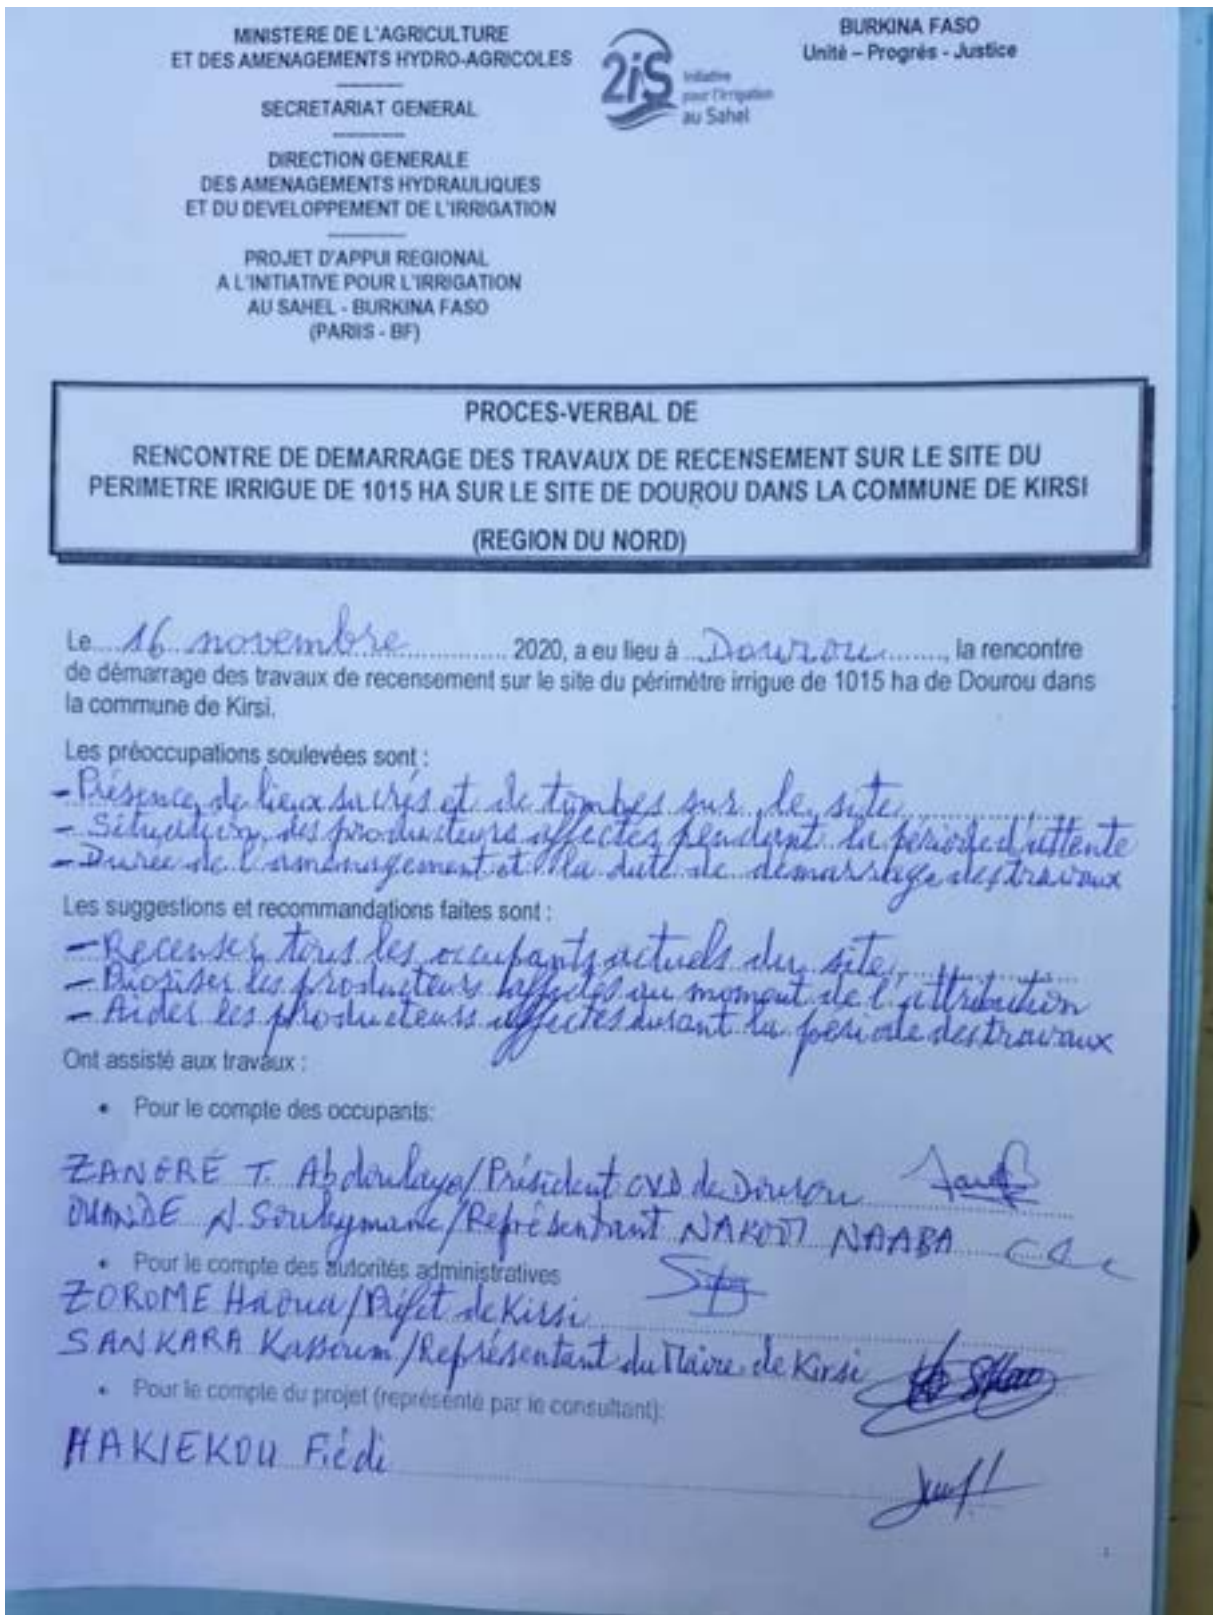 MINISTERE DE L'AGRICULTURE
ET DES AMENAGEMENTS HYDRO-AGRICOLES
SECRETARIAT GENERAL
DIRECTION GENERALE
DES AMENAGEMENTS HYDRAULIQUES
ET DU DEVELOPPEMENT DE L'IRRIGATION
PROJET D'APPUI REGIONAL
A L'INITIATIVE POUR L'IRRIGATION
AU SAHEL - BURKINA FASO
(PARIIS - BF)
2iS
Initiative
pour l'Irrigation
au Sahel
BURKINA FASO
Unité – Progrés - Justice
PROCES-VERBAL DE
RENCONTRE DE DEMARRAGE DES TRAVAUX DE RECENSEMENT SUR LE SITE DU
PERIMETRE IRRIGUE DE 1015 HA SUR LE SITE DE DOUROU DANS LA COMMUNE DE KIRSI
(REGION DU NORD)
Le 16 novembre 2020, a eu lieu à Dourou, la rencontre
de démarrage des travaux de recensement sur le site du périmétre irrigue de 1015 ha de Dourou dans
la commune de Kirsi.
Les préoccupations soulevées sont :
- Présence de lieux sacrés et de tombes sur le site
- Situation des producteurs affectés pendant la période d'attente
- Durée de l'aménagement et la date de démarrage des travaux
Les suggestions et recommandations faites sont :
- Recenser tous les occupants actuels du site,
- les producteurs affectés au moment de l'attribution
- Aider les producteurs affectés durant la période des travaux
Ont assisté aux travaux :
• Pour le compte des occupants:
ZANGRE T. Abdoulaye/Président CVD de Dourou
OUANDE N. Souleymane/Représentant NAABA
• Pour le compte des autorités administratives
ZOROME Haoua/Préfet de Kirsi
SANKARA Kassoum/Représentant du Maire de Kirsi
• Pour le compte du projet (représenté par le consultant):
HAKIEKOU Fiédi